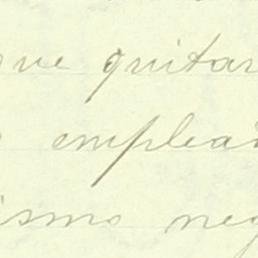 que quitar
emplea
ismo neg